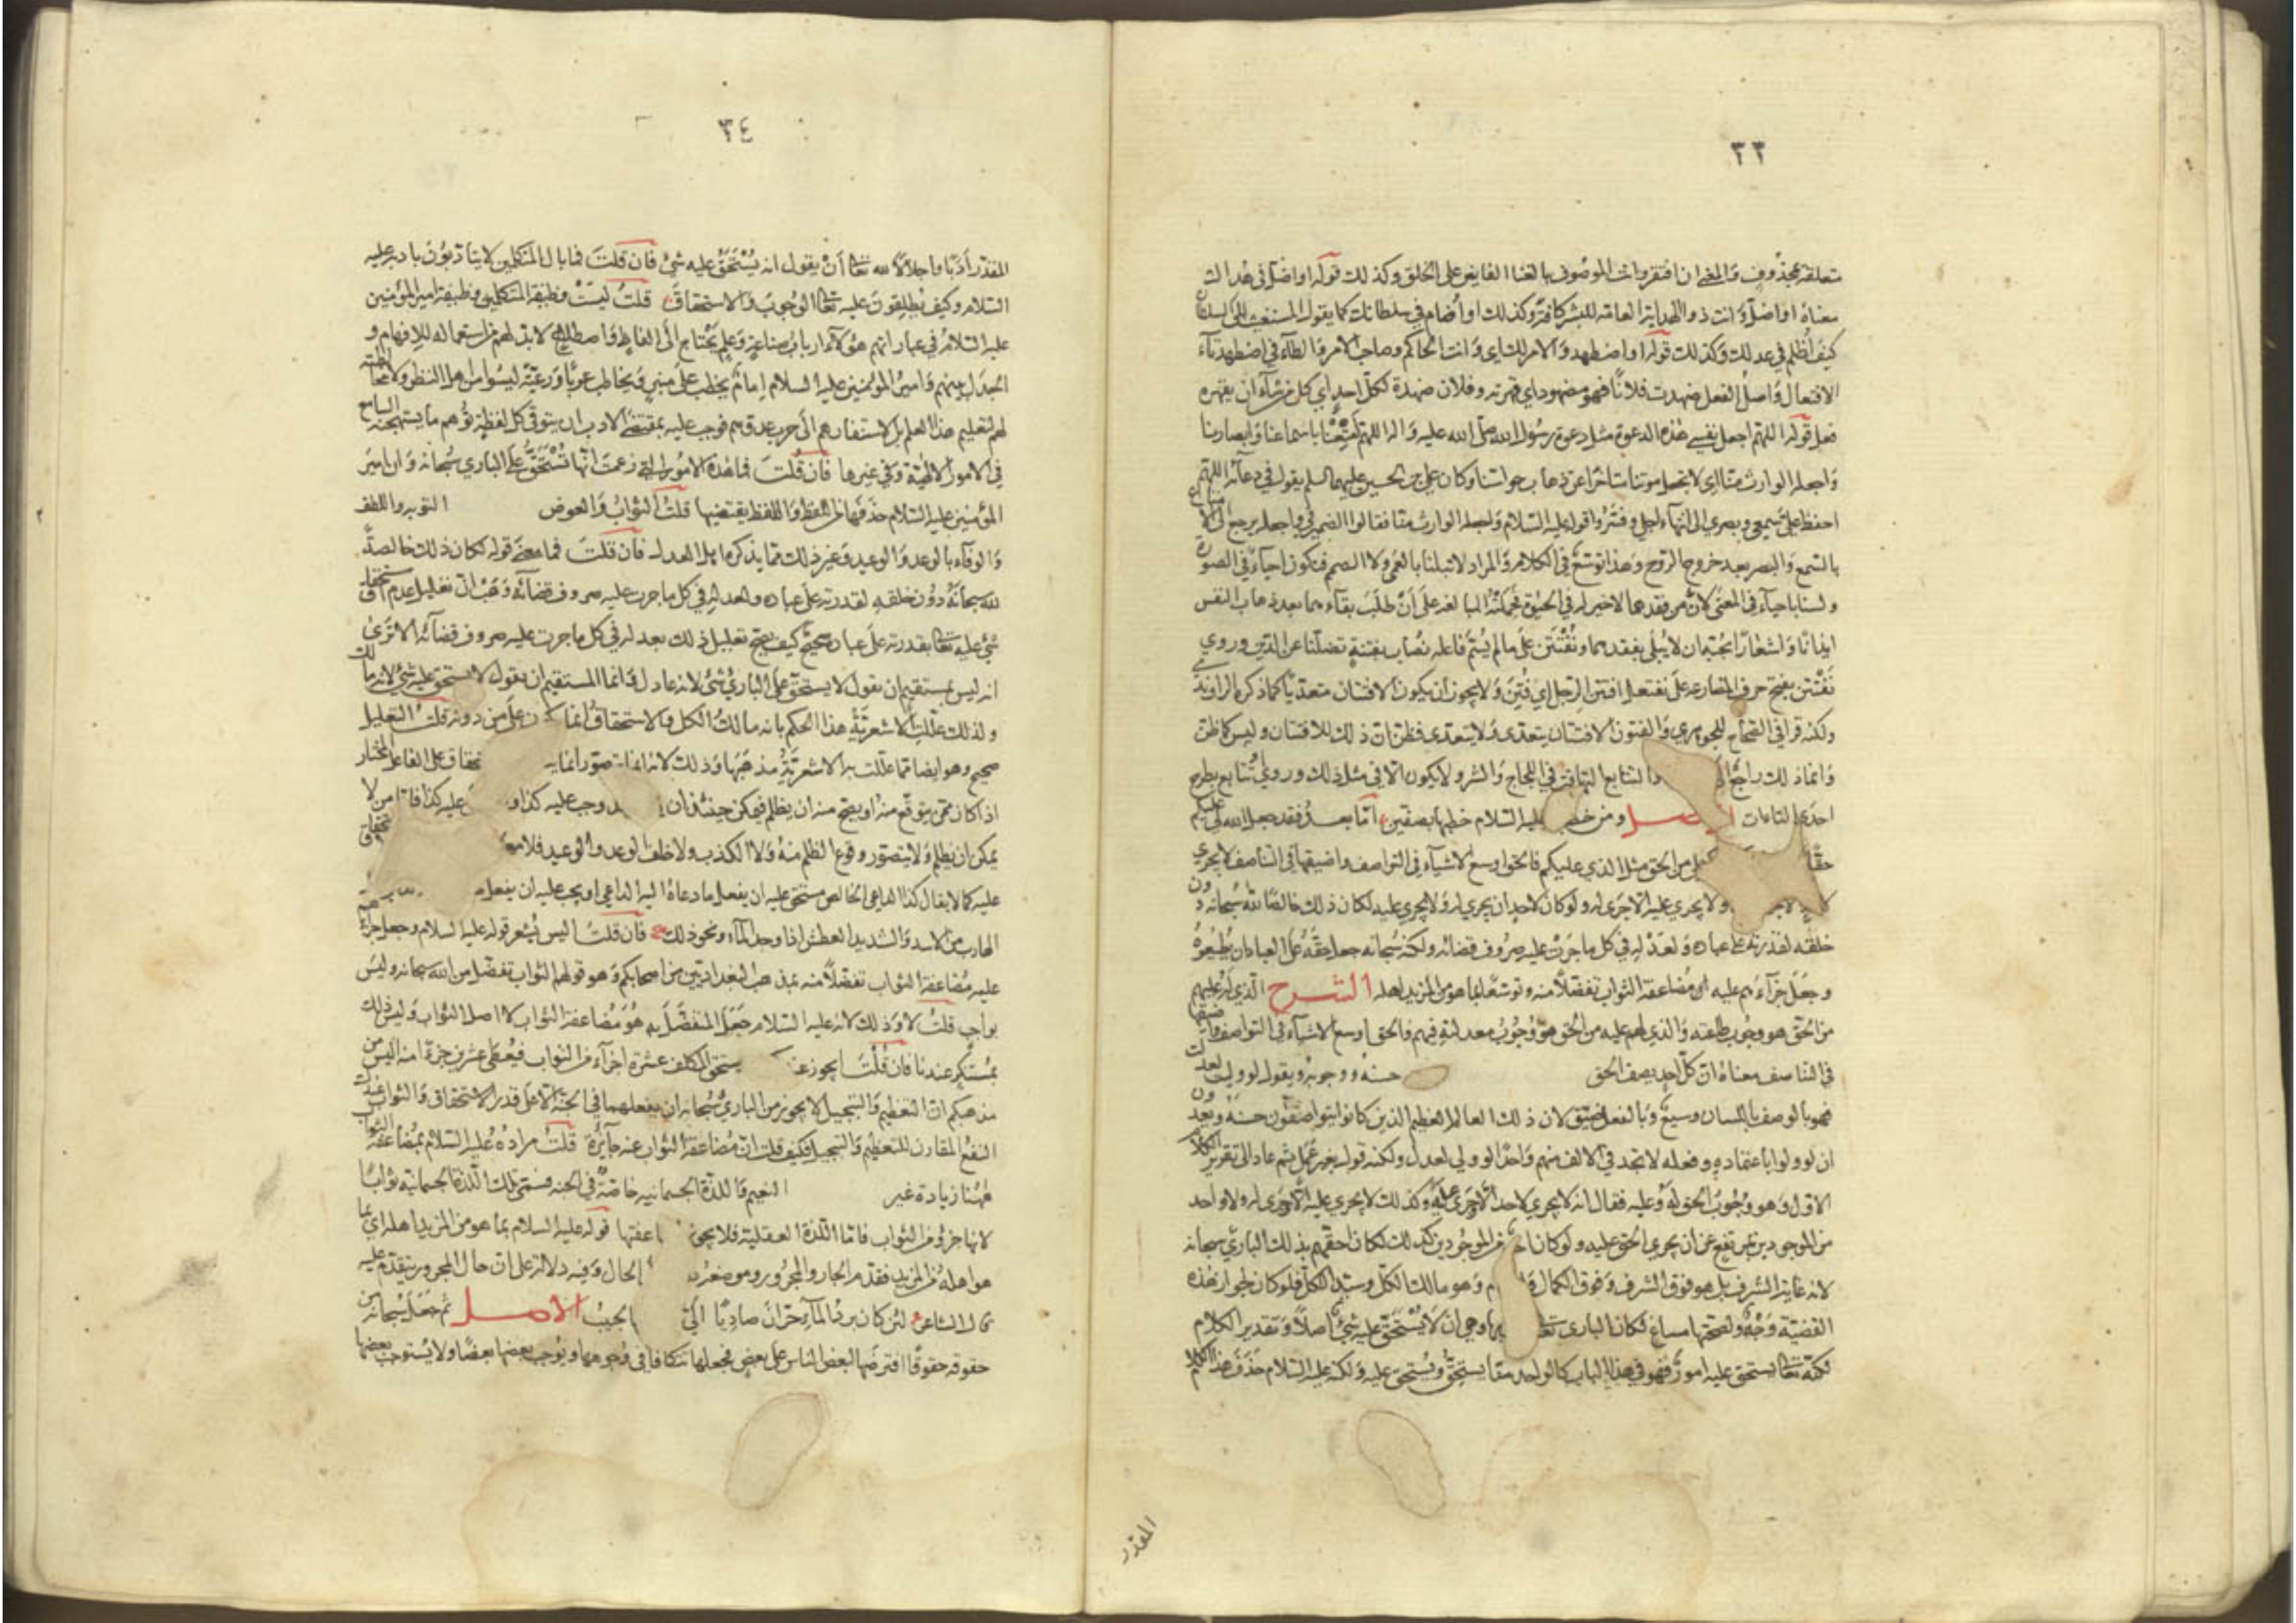 ٣٣
متعلقة بمحذوف والمعنى ان افتقر وانت الموصوف بالغنا الفايض على الخلق وكذلك قوله او اضل في هداك
معناه او اضل وانت ذو الهداية العامة للبشر كافة وكذلك او أضام في سلطانك كما يقول المستغيث الى السلطان
كيف أُظلم في عدلك وكذلك قوله او اضطهد والامر لك اي وانت الحاكم وصاحب الامر والطاء في اضطهد تاء
الافتعال واصل الفعل ضهدت فلانا فهو مضهود اي قهرته وفلان ضهدة لكل احد اي كل من شاء ان يقهره
فعل قوله اللهم اجعل نفسي هذه الدعوة مثل دعوة رسول الله صلى الله عليه واله اللهم أمتعنا باسماعنا وابصارنا
واجعله الوارث منا اي لا تجعل موتنا متأخرا عن ذهاب حواسنا وكان علي بن الحسين عليهما السلم يقول في دعائه اللهم
احفظ علي سمعي وبصري الى انتهاء اجلي وفسروا قوله عليه السلام واجعله الوارث منا فقالوا الضمير في واجعله يرجع الى الامتاع
بالسمع والبصر بعد خروج الروح وهذا توسع في الكلام والمراد لا تبلنا بالعمى ولا الصمم فنكون احياء في الصورة
ولسنا باحياء في المعنى لان من فقدهما لا خير له في الحيوة فحملته المبالغة على أن طلب بقاءهما بعد ذهاب النفس
ايذانا واشعارا بحبه ان لا يبلى بفقدهما ونُفْتَتن على ما لم يُسَم فاعله نُصاب بفتنة تضلنا عن الدين وروي
نَفْتَتن بفتح حرف المضارعة على نفتعل افتتن الرجل اي فُتِنَ ولا يجوز ان يكون الافتتان متعديا كما ذكره الراوندي
ولكنه قرأ في الصحاح للجوهري والفتون الافتتان يتعدى ولا يتعدى فظن ان ذلك للافتتان وليس كما ظن
وانما ذلك راجع الى والتتابع التهافت في اللجاج والشر ولا يكون الا في مثل ذلك وروي أو تتابع بطرح
احدى التاءات الاصل ومن خطبة عليه السلام خطبها بصفين اما بعد فقد جعل الله لي عليكم
حقا من الحق مثل الذي عليكم فالحق اوسع الاشياء في التواصف واضيقها في التناصف لا يجري
لاحد ولا يجري عليه الا جرى له ولو كان لاحد ان يجري له ولا يجري عليه لكان ذلك خالصا لله سبحانه دون
خلقه لقدرته على عباده ولعدله في كل ما جرت عليه صروف قضائه ولكنه سبحانه جعل حقه على العباد ان يطيعوه
وجعل جزاءهم عليه مضاعفة الثواب تفضلا منه وتوسعا بما هو من المزيد اهله الشرح الذي له عليهم
من الحق هو وجوب طاعته والذي لهم عليه من الحق هو وجوب معدلته فيهم فالحق اوسع الاشياء في التواصف واضيقها
في التناصف معناه ان كل احد يصف الحق حسنه ووجوبه ويقول لو وليت لعدلت
فهو بالوصف باللسان وسيع وبالفعل ضيق لان ذلك العالم العظيم الذين كانوا يتواصفون حسنه ويعدون
ان لو ولوا باعتماده وفعله لا تجد في الالف منهم واحدا لو ولي لعدل ولكنه قول بغير عمل ثم عاد الى تقرير الكلام
الاول وهو وجوب الحق له وعليه فقال انه لا يجري لاحد الا جرى عليه وكذلك لا يجري عليه الا جرى له ولا واحد
من الموجودين يرتفع عن أن يجري الحق عليه ولو كان احد من الموجودين كذلك لكان احقهم بذلك الباري سبحانه
لانه غاية الشرف بل هو فوق الشرف وفوق الكمال وهو مالك الكل وسيد الكل فلو كان لجواز هذه
القضية وجه ولصحتها مساغ لكان الباري تعالى وهي ان لا يُستحق عليه شيء اصلا وتقدير الكلام
لكنه تعالى يستحق عليه امور فهو في هذا الباب كالواحد منا يستحق ويُستحق عليه ولكنه عليه السلام حذف هذا الكلام
المقدر
٣٤
المقدر أدبا واجلالا لله تعالى أن يقول انه يُستحق عليه شيء فان قلت فما بال المتكلمين لا يتأدبون بادبه عليه
السلام وكيف يُطلقون عليه تعالى الوجوب والاستحقاق قلت ليست وظيفة المتكلمين وظيفة امير المؤمنين
عليه السلام في عباراتهم هؤلاء ارباب صناعة وعلم يحتاج الى الفاظ واصطلاح لا بد لهم من استعماله للافهام و
الجدل بينهم وامير المؤمنين عليه السلام إمام يخطب على منبر ويخاطب عربا ورعية ليسوا من اهل النظر ولا مخاطبته
لهم لتعليم هذا العلم بل لاستنفارهم الى حرب عدوهم فوجب عليه بمقتضى الادب ان يتوقى كل لفظة توهم ما يستهجنه السامع
في الامور الالهية وفي غيرها فان قلت فما هذه الامور التي زعمت انها تُستحق على الباري سبحانه وان امير
المؤمنين عليه السلام حذفها من اللفظ واللفظ يقتضيها قلت الثواب والعوض التوبة واللطف
والوفاء بالوعد والوعيد وغير ذلك مما يذكره اهل العدل فان قلت فما معنى قوله لكان ذلك خالصا
لله سبحانه دون خلقه لقدرته على عباده ولعدله في كل ما جرت عليه صروف قضائه وهَبْ ان تعليل عدم استحقاق
شيء عليه تعالى بقدرته على عباده صحيح كيف يصح تعليل ذلك بعدله في كل ما جرت عليه صروف قضائه الا ترى
انه ليس بمستقيم ان نقول لا يستحق على الباري شيء لانه عادل وانما المستقيم ان نقول لا يستحق عليه شيء لانه مالك
ولذلك عللت الاشعرية هذا الحكم بانه مالك الكل والاستحقاق انما على من دونه قلت التعليل
صحيح وهو ايضا مما عللت به الاشعرية مذهبها وذلك لانه انما يتصور على الفاعل المختار
اذا كان ممن يتوقع منه او يصح منه ان يظلم فيمكن حينئذ ان وجب عليه كذا و عليه كذا فاما من لا
يمكن ان يظلم ولا يتصور وقوع الظلم منه ولا الكذب ولا خلف الوعد والوعيد فلا معنى
عليه كما لا يقال كذا الداعي الخالص مستحق عليه ان يفعل ما دعاه اليه الداعي او يجب عليه ان يفعل
الهارب من الاسد والشديد العطش اذا وجد الماء ونحو ذلك فان قلت اليس يُشعر قوله عليه السلام وجعل جزاءهم
عليه مضاعفة الثواب تفضلا منه بمذهب البغداديين من اصحابكم وهو قولهم الثواب تفضل من الله سبحانه وليس
بواجب قلت لا وذلك لانه عليه السلام جعل المتفضل به هو مضاعفة الثواب لا اصل الثواب وليس ذلك
بمستنكر عندنا فان قلت ايجوز يستحق المكلف عشرة اجزاء من الثواب فيعطى عشرين جزءا منه اليس من
مذهبكم ان التعظيم والتبجيل لا يجوز من الباري سبحانه ان يفعلهما في الجنة الا على قدر الاستحقاق والثواب عندكم
النفع المقارن للتعظيم والتبجيل فكيف قلت ان مضاعفة الثواب عنه جائزة قلت مراده عليه السلام بمضاعفة الثواب
ههنا زيادة غير النعيم واللذة الجسمانيه خاصة في الجنه فسمى تلك اللذة الجسمانية ثوابا
لانها جزؤ من الثواب فاما اللذة العقلية فلا يجوز قوله عليه السلام بما هو من المزيد اهله اي بما
هو اهله من المزيد فقدم الجار والمجرور وموضعه الحال وفيه دلالة على ان حال المجرور يتقدم عليه
كما قال الشاعر لئن كان برد الماء حرّان صاديا الي لحبيب الاصل ثم جعل سبحانه من
حقوقه حقوقا افترضها لبعض الناس على بعض فجعلها تتكافأ في وجوهها ويوجب بعضها بعضا ولا يُستوجب بعضها